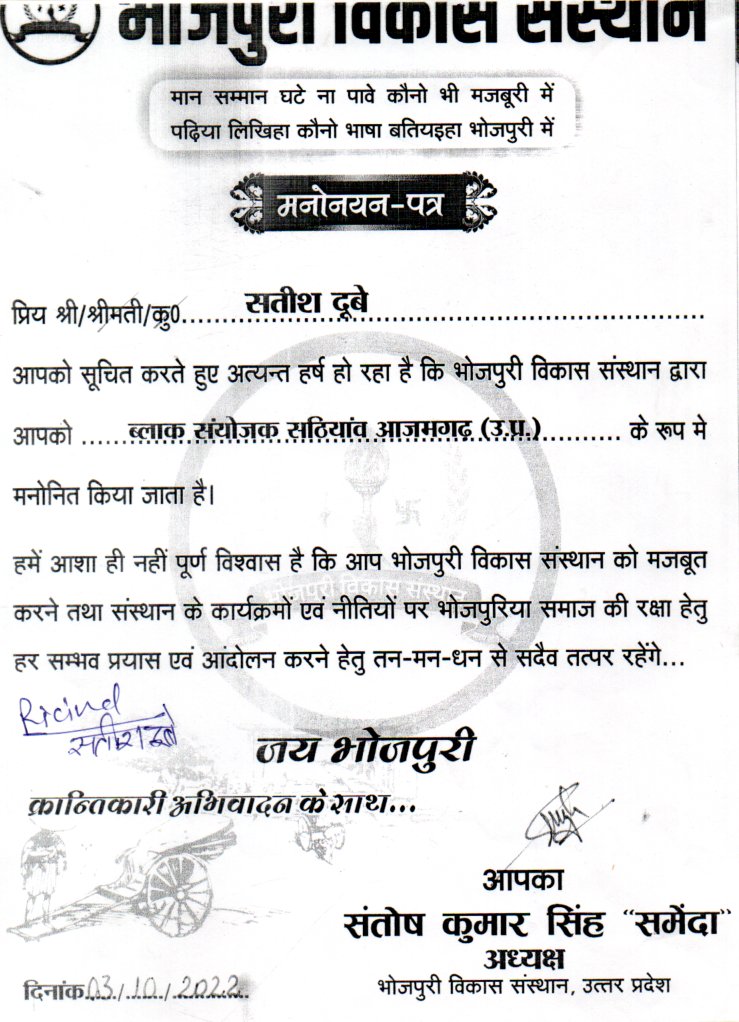 भोजपुरी विकास संस्थान
मान सम्मान घटे ना पावे कौनो भी मजबूरी में
पढ़िया लिखिहा कौनो भाषा बतियइहा भोजपुरी में
मनोनयन-पत्र
प्रिय श्री/श्रीमती/कु0.....सतीश दूबे.....
आपको सूचित करते हुए अत्यन्त हर्ष हो रहा है कि भोजपुरी विकास संस्थान द्वारा
आपको .....ब्लाक संयोजक सठियांव आजमगढ़ (उ.प्र.)..... के रूप मे
मनोनित किया जाता है।
हमें आशा ही नहीं पूर्ण विश्वास है कि आप भोजपुरी विकास संस्थान को मजबूत
भोजपुरी विकास संस्थान
करने तथा संस्थान के कार्यक्रमों एवं नीतियों पर भोजपुरिया समाज की रक्षा हेतु
हर सम्भव प्रयास एवं आंदोलन करने हेतु तन-मन-धन से सदैव तत्पर रहेंगे...
Ricind
सतीश दूबे
जय भोजपुरी
क्रान्तिकारी अभिवादन के साथ...
आपका
संतोष कुमार सिंह “समेंदा”
अध्यक्ष
भोजपुरी विकास संस्थान, उत्तर प्रदेश
दिनांक 03/10/2022